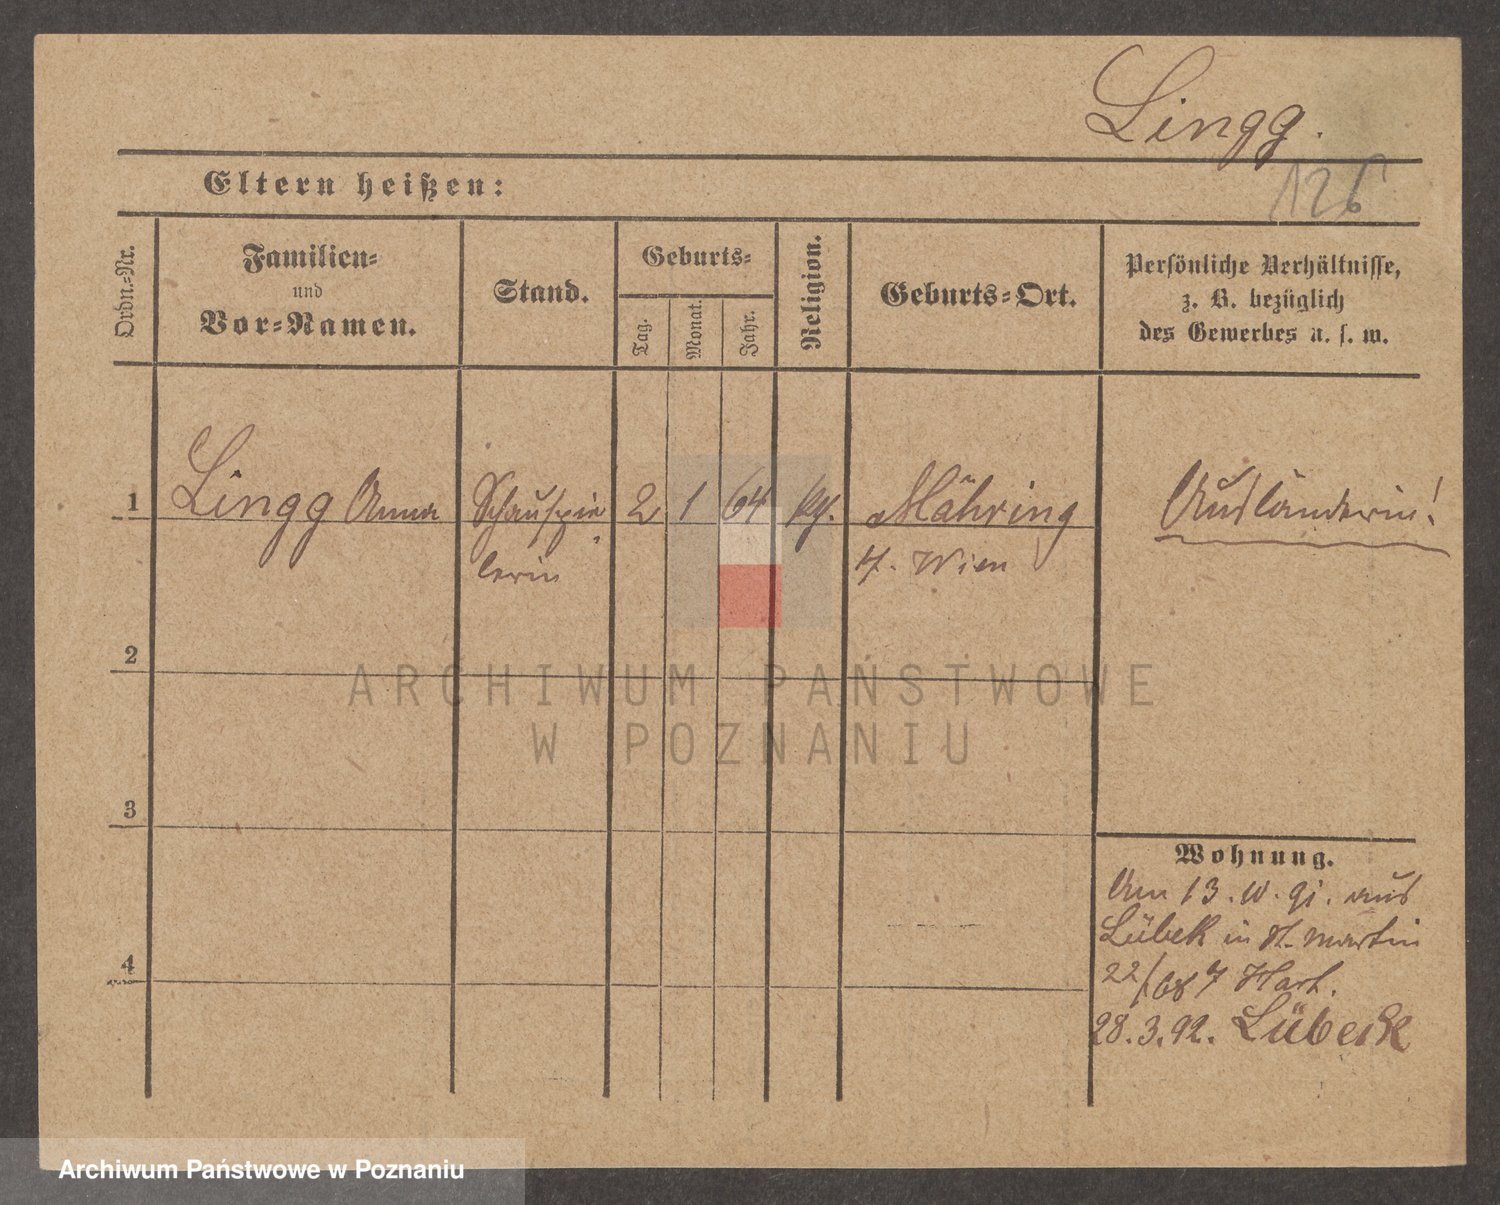 Lingg.
126
Eltern heißen:
Ordn.-Nr.
Familien-
und
Vor-Namen.
Stand.
Geburts-
Tag.
Monat.
Jahr.
Religion.
Geburts-Ort.
Persönliche Verhältnisse,
z. B. bezüglich
des Gewerbes u. s. w.
1 Lingg Anna Schauspie 2 1 64 Mähring Ausländerin!
lerin Wien
2
ARCHIWUM PAŃSTWOWE
W POZNANIU
3
Wohnung.
Am 13. 10. 91. aus
Lübek in St. Martin
4
22/
28.3.92. Lübeck
Archiwum Państwowe w Poznaniu